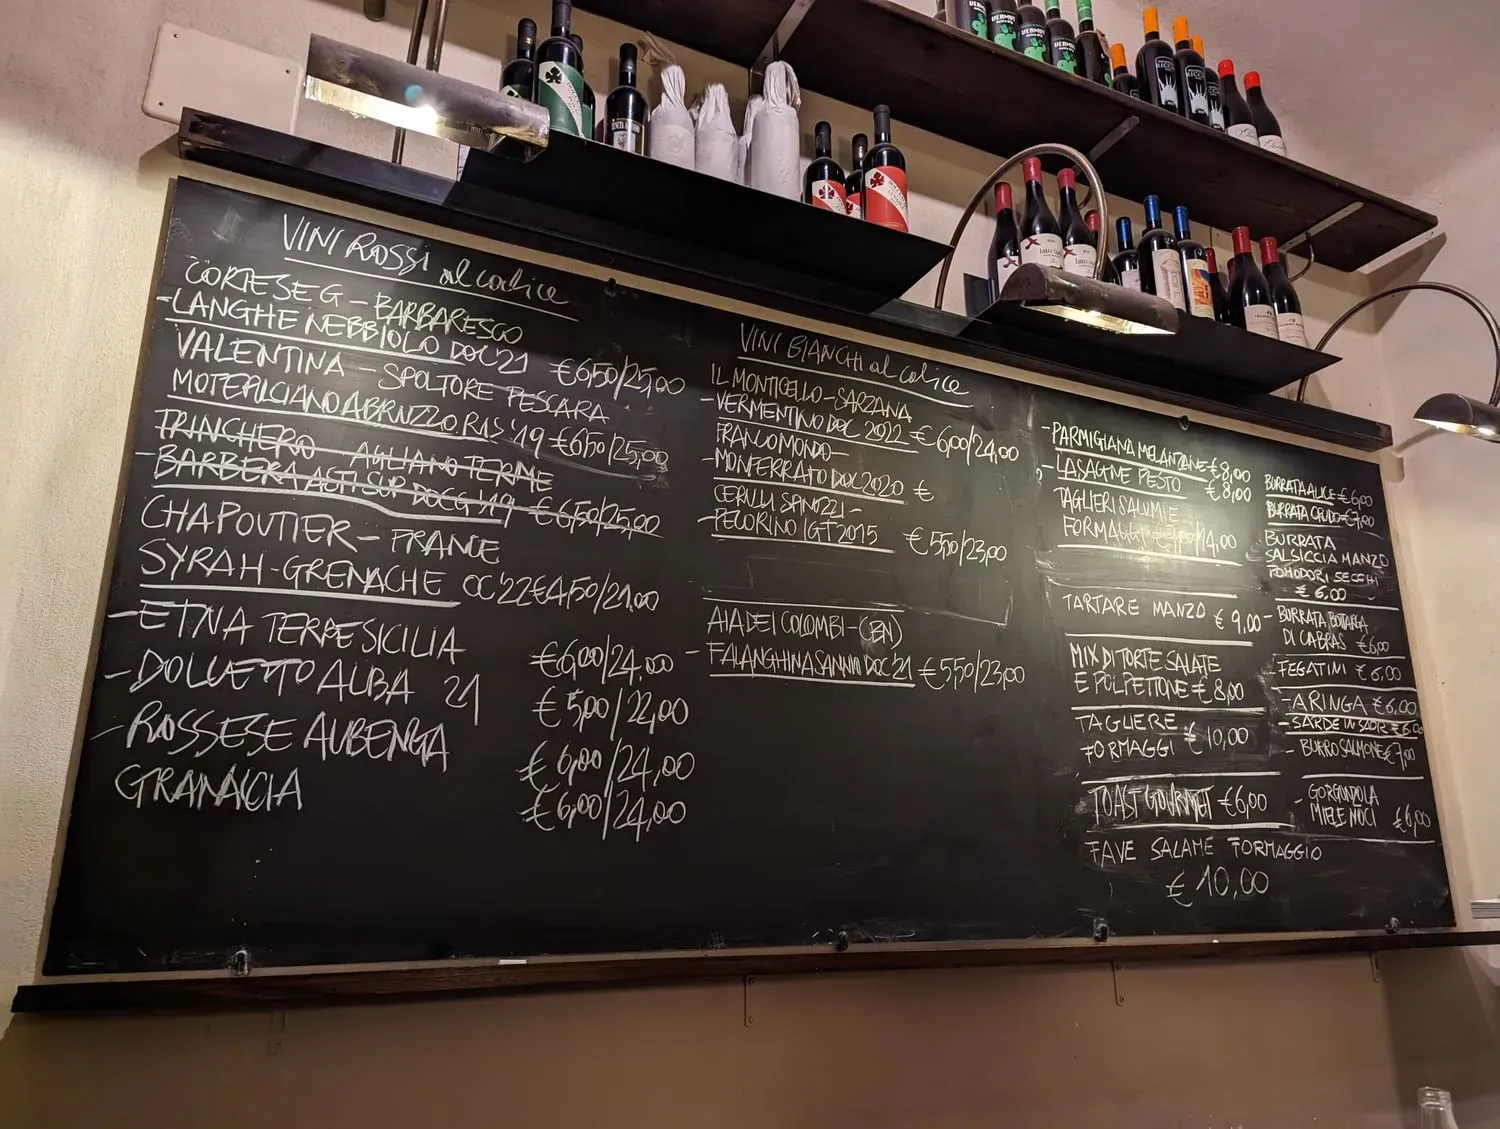 VINI ROSSI al calice
CORTESE G - BARBARESCO
- LANGHE NEBBIOLO DOC '21 €6,50/25,00
VALENTINA - SPOLTORE PESCARA
MOTEPULCIANO ABRUZZO RIS '19 €6,50/25,00
TRINCHERO - AGLIANO TERME
- BARBERA ASTI SUP DOCG '19 €6,50/25,00
CHAPOUTIER - FRANCE
SYRAH-GRENACHE OC '22 €4,50/21,00
- ETNA TERRE SICILIA €6,00/24,00
- DOLCETTO ALBA 21 €5,00/22,00
- ROSSESE ALBENGA €6,00/24,00
GRANACCIA €6,00/24,00
VINI BIANCHI al calice
IL MONTICELLO - SARZANA
- VERMENTINO DOC 2022 €6,00/24,00
FRANCO MONDO -
- MONFERRATO DOC 2020 €
CERULLI SPINOZZI -
- PECORINO IGT 2015 €5,50/23,00
AIA DEI COLOMBI - (BN)
- FALANGHINA SANNIO DOC '21 €5,50/23,00
- PARMIGIANA MELANZANE €8,00
- LASAGNE PESTO €8,00
TAGLIERI SALUMI E
FORMAGGI /14,00
TARTARE MANZO €9,00
MIX DI TORTE SALATE
E POLPETTONE €8,00
TAGLIERE
FORMAGGI €10,00
TOAST GOURMET €6,00
FAVE SALAME FORMAGGIO
€10,00
BURRATA ALICE €6,00
BURRATA CRUDO €7,00
BURRATA
SALSICCIA MANZO
POMODORI SECCHI
€6,00
- BURRATA BOTTARGA
DI CABRAS €6,00
- FEGATINI €6,00
- ARINGA €6,00
- SARDE IN SAOR €6,00
- BURRO SALMONE €7,00
- GORGONZOLA
MIELE NOCI €6,00